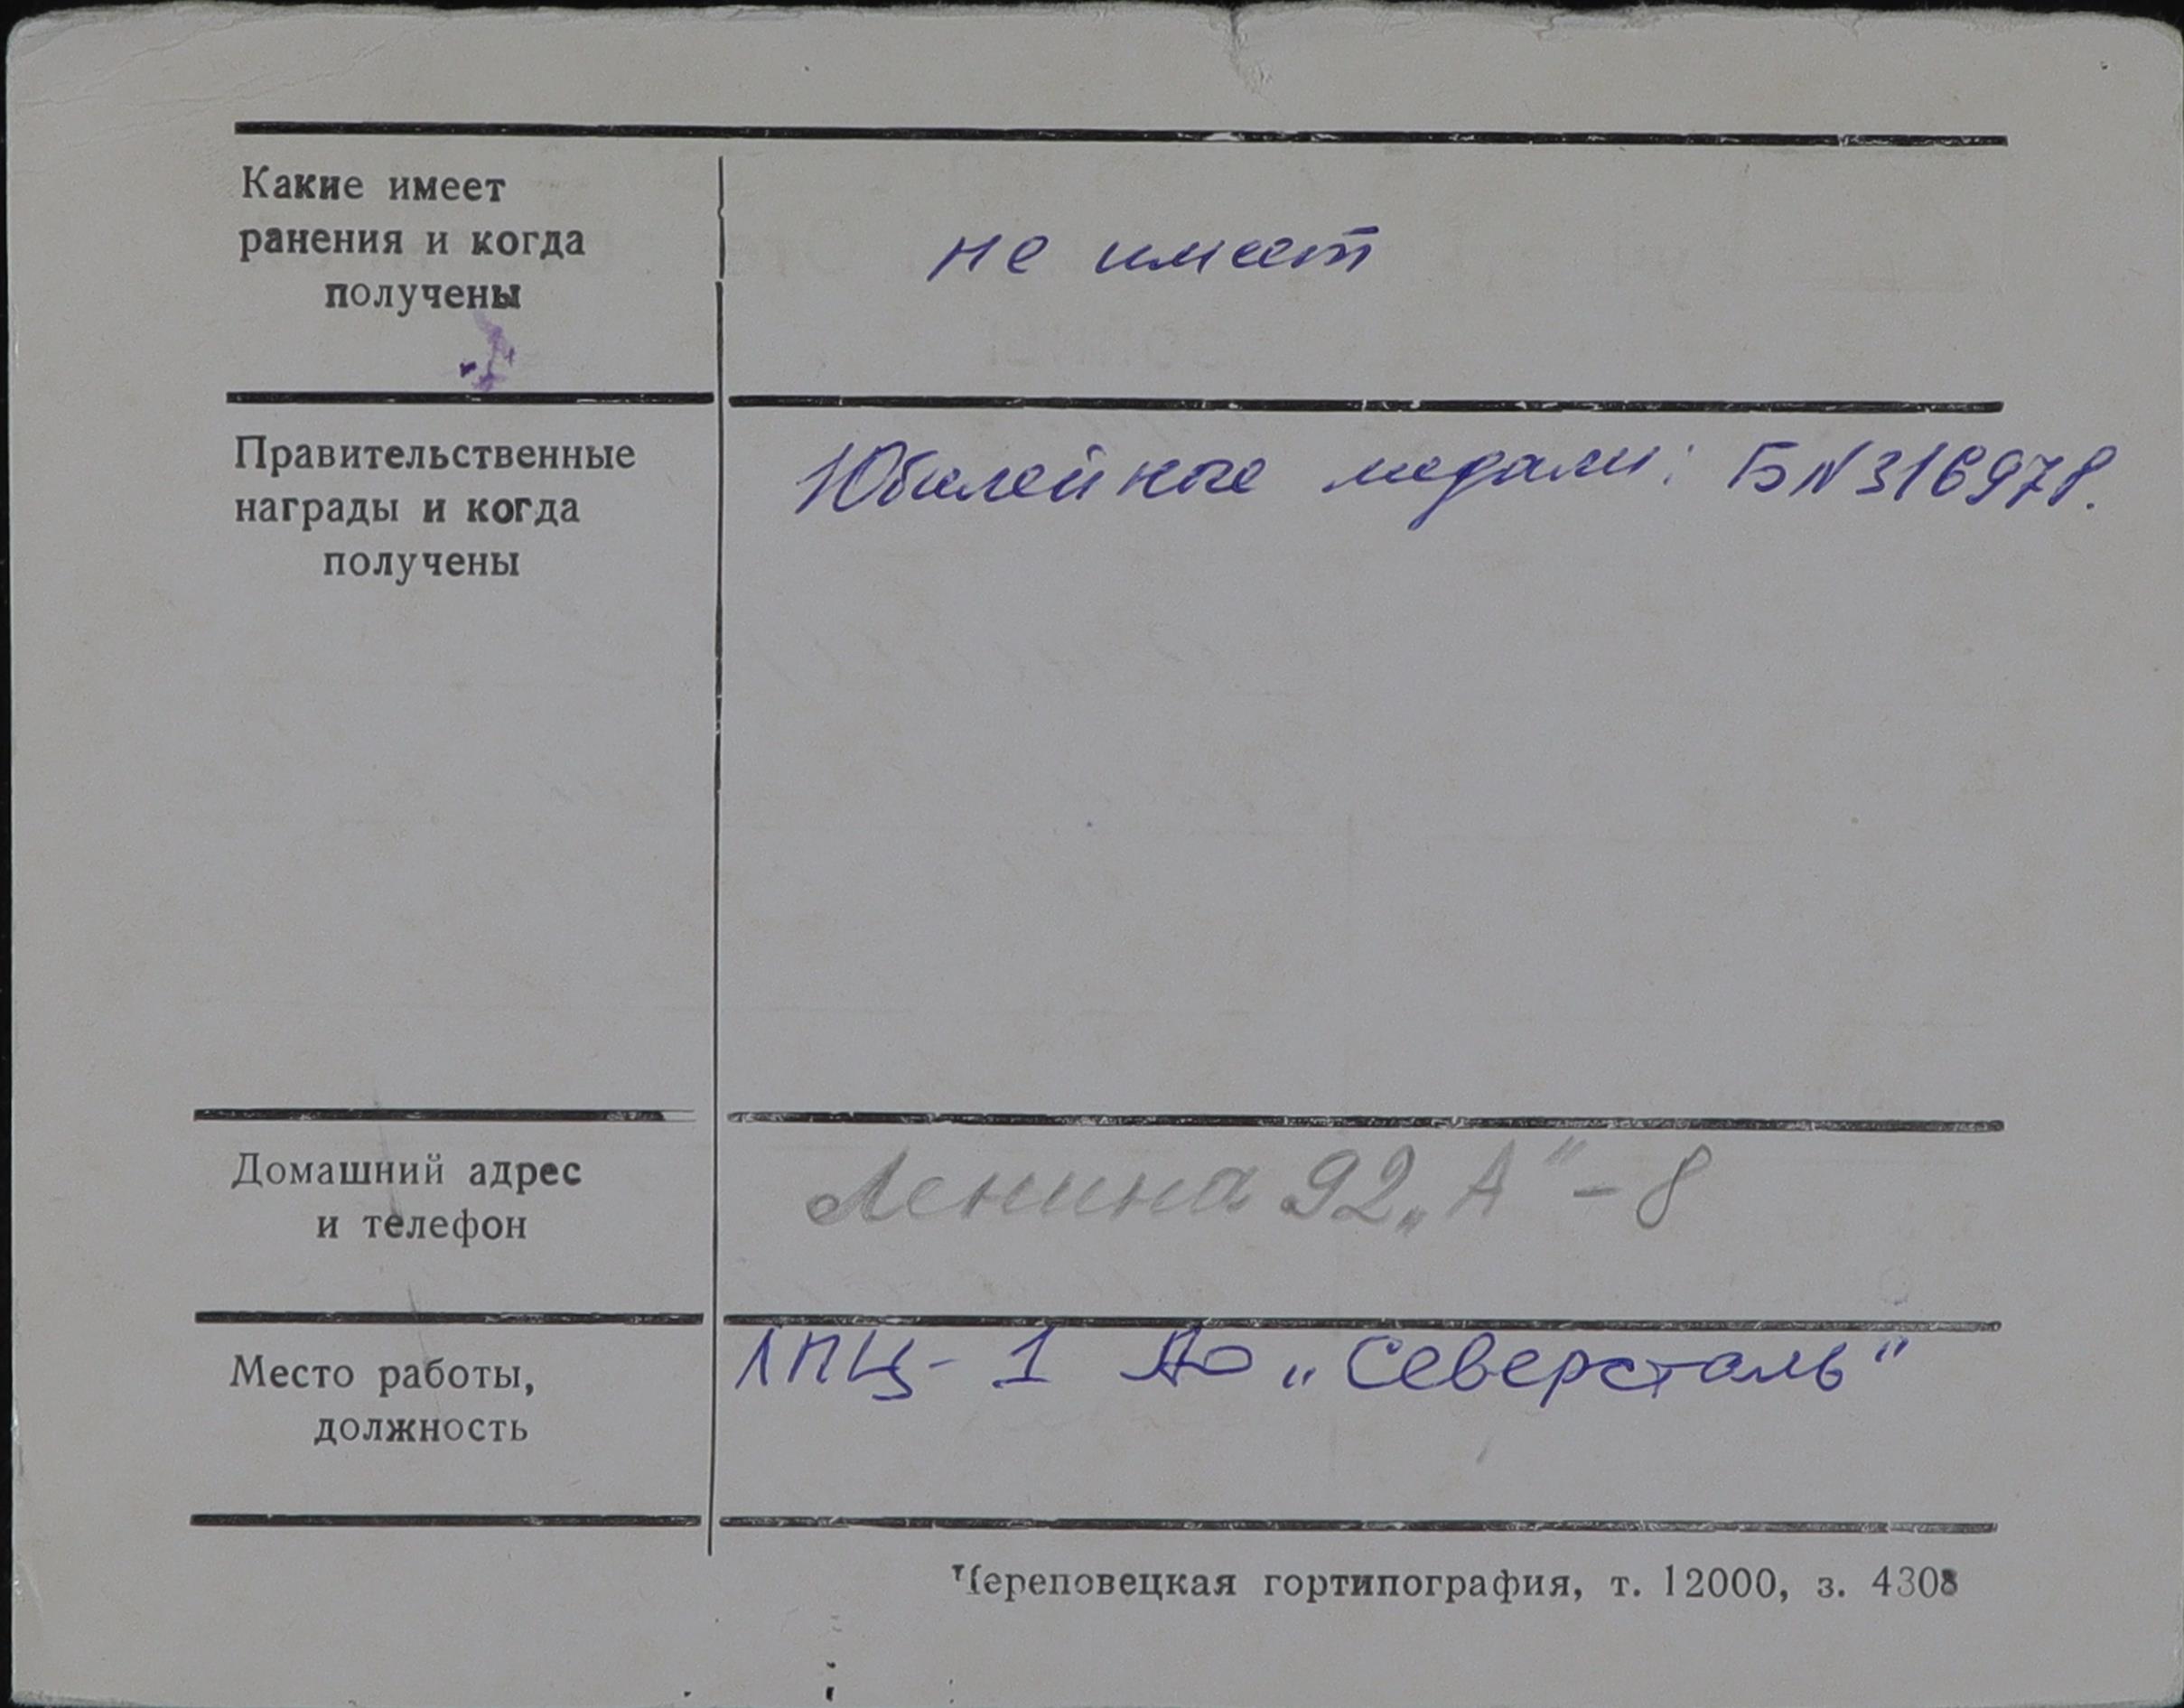 Какие имеет
ранения и когда
получены
не имеет
Правительственные
награды и когда
получены
Юбилейные медали: Б№316978.
Домашний адрес
и телефон
Ленина 92 „А" - 8
Место работы,
должность
ЛПЦ - 1 АО „Северсталь"
Череповецкая гортипография, т. 12000, з. 4308